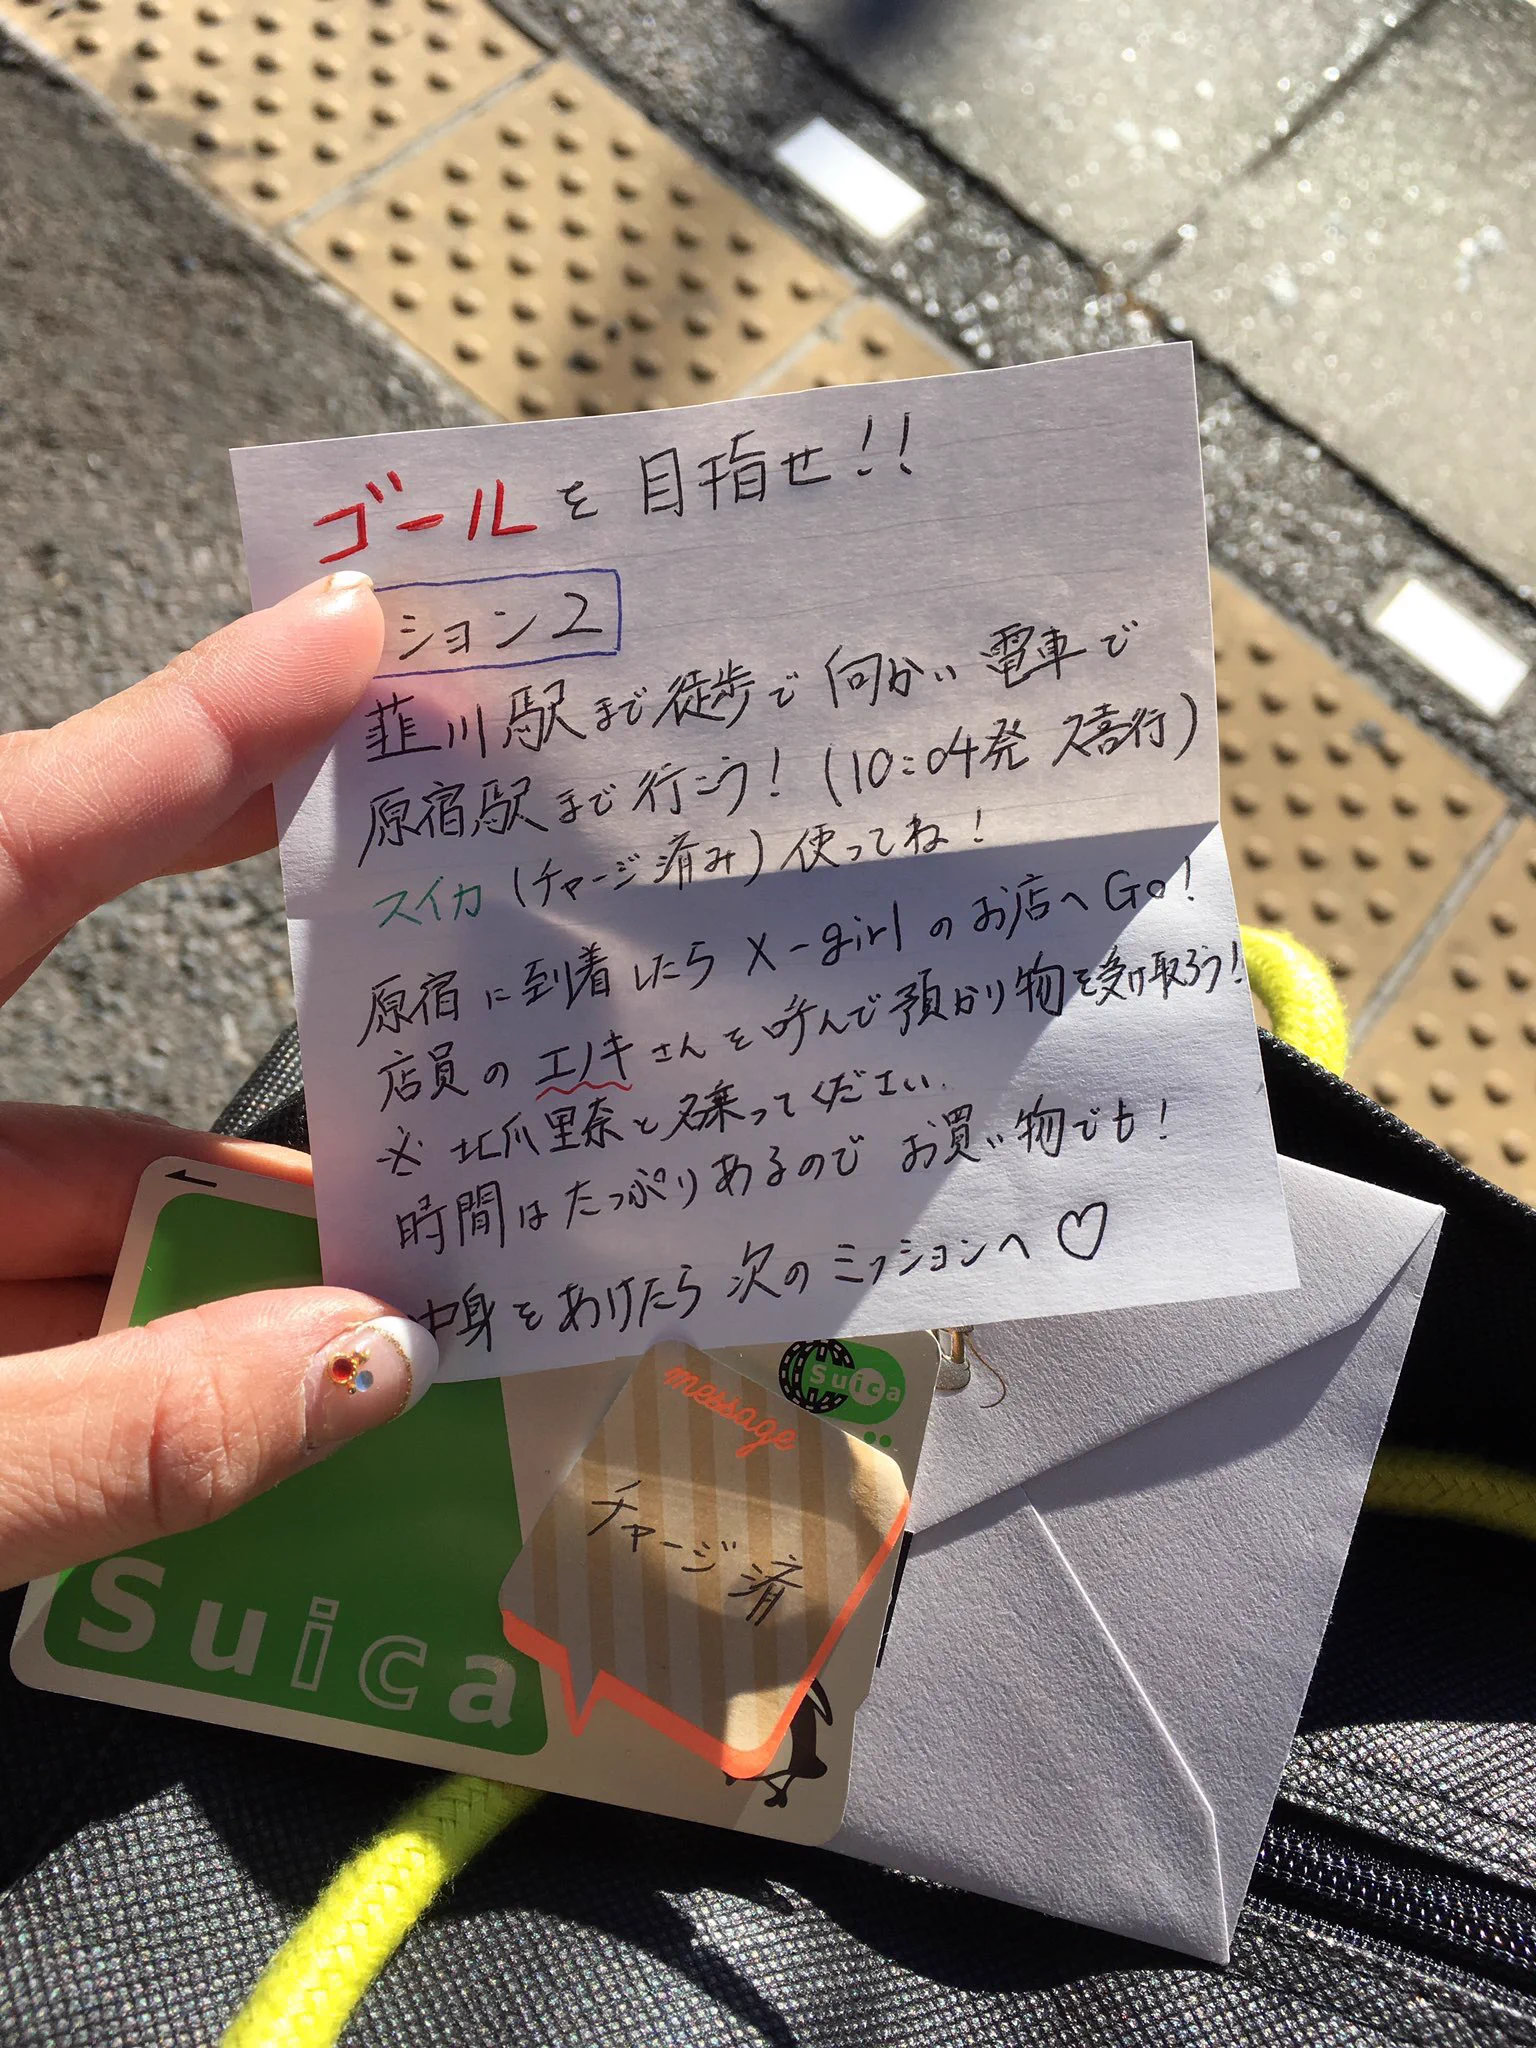 ゴールを目指せ!!
ション2
韮川駅まで徒歩で向かい電車で
原宿駅まで行こう!(10:04発 久喜行)
スイカ(チャージ済み)使ってね!
原宿に到着したらX-girlのお店へGo!
店員のエノキさんを呼んで預かり物を受け取ろう!
※北爪里奈と名乗ってください.
時間はたっぷりあるのでお買い物でも!
中身をあけたら次のミッションへ♡
Suica
message
チャージ済
Suica